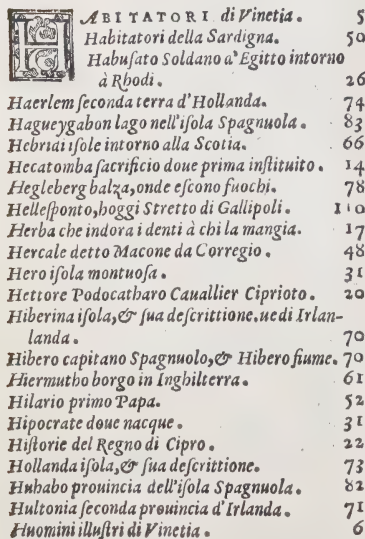 HABITATORI di Vinetia. 5
Habitatori della Sardigna. 50
Habuſato Soldano d'Egitto intorno
à Rhodi. 26
Haerlem ſeconda terra d'Hollanda. 74
Hagueygabon lago nell'iſola Spagnuola. 83
Hebridi iſole intorno alla Scotia. 66
Hecatomba ſacrificio doue prima inſtituito. 14
Hegleberg balza, onde eſcono fuochi. 78
Helleſponto, hoggi Stretto di Gallipoli. 110
Herba che indora i denti à chi la mangia. 17
Hercale detto Macone da Corregio. 48
Hero iſola montuoſa. 31
Hettore Podocatharo Cauallier Ciprioto. 20
Hiberina iſola, & ſua deſcrittione. ue di Irlan-
landa. 70
Hibero capitano Spagnuolo, & Hibero fiume. 70
Hiermutho borgo in Inghilterra. 61
Hilario primo Papa. 52
Hipocrate doue nacque. 31
Hiſtorie del Regno di Cipro. 22
Hollanda iſola, & ſua deſcrittione. 73
Huhabo prouincia dell'iſola Spagnuola. 82
Hultonia ſeconda prouincia d'Irlanda. 71
Huomini illuſtri di Vinetia. 6